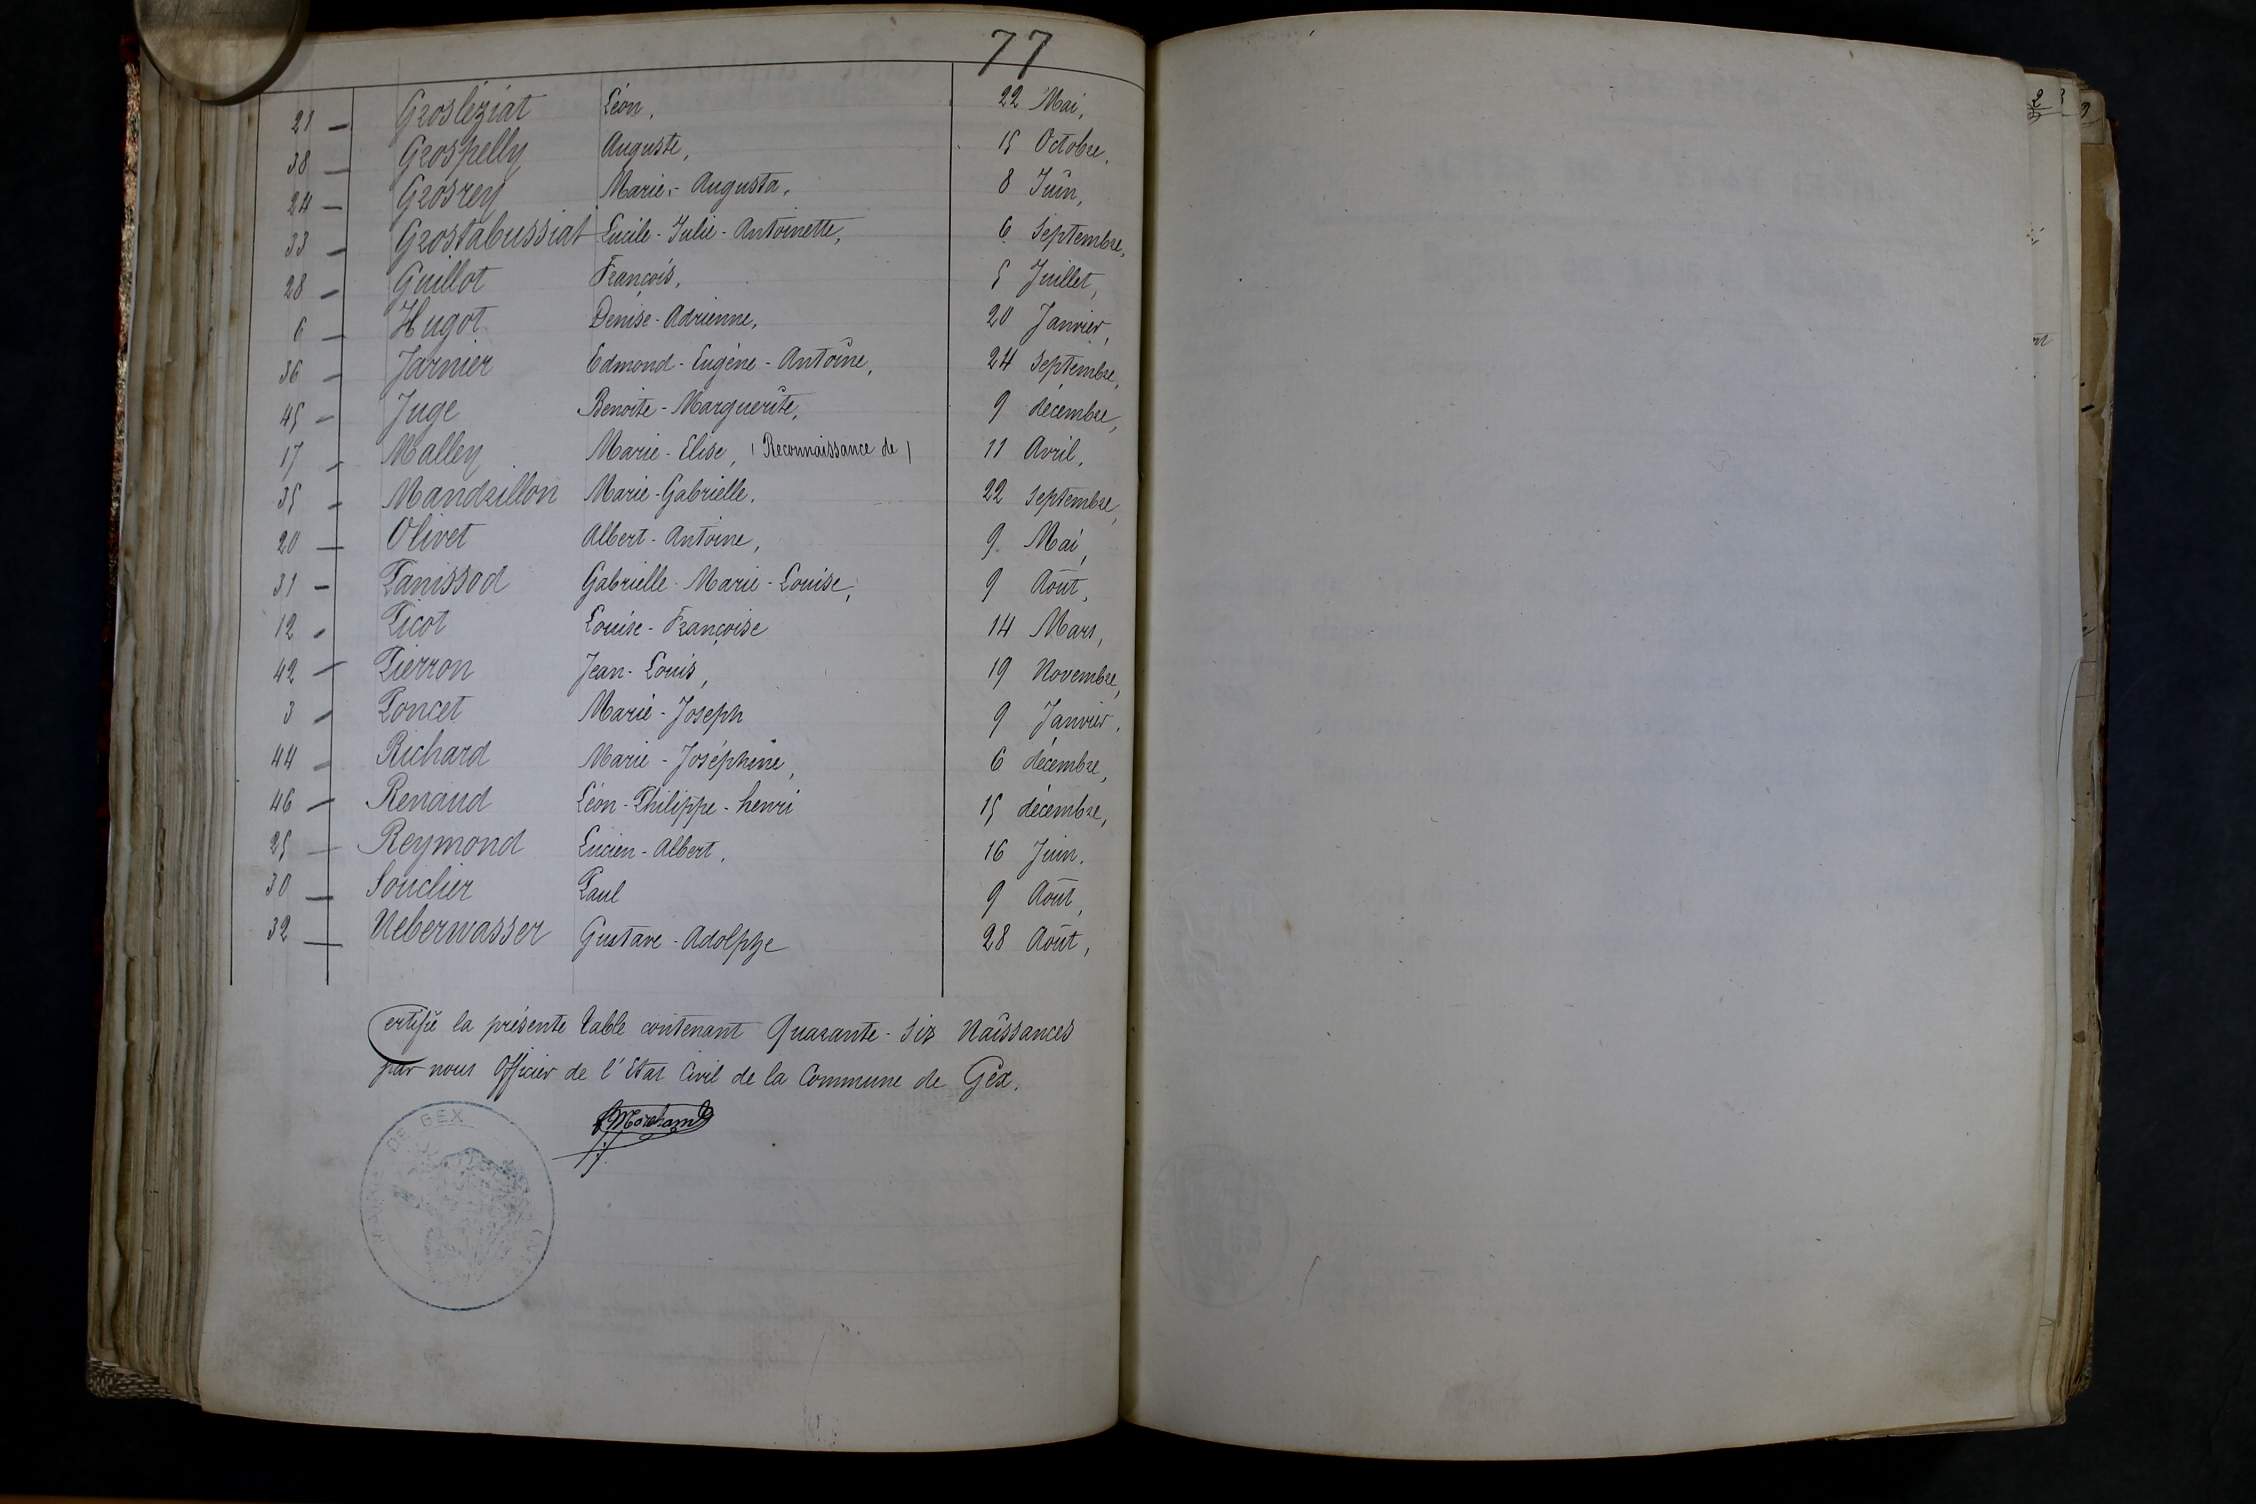 77
21 — Grosléziat Léon, 22 Mai,
38 — Grospelly Auguste, 15 Octobre,
24 — Grosrey Marie-Augusta, 8 Juin,
33 — Grostabussiat Lucile-Julie-Antoinette, 6 Septembre,
28 — Guillot François, 5 Juillet,
6 — Hugot Denise-Adrienne, 20 Janvier,
36 — Jarnier Edmond-Eugène-Antoine, 24 Septembre,
45 — Juge Benoite-Marguerite, 9 décembre,
17 — Malley Marie-Elise, (Reconnaissance de) 11 Avril,
35 — Mandrillon Marie-Gabrielle, 22 Septembre,
20 — Olivet Albert-Antoine, 9 Mai,
31 — Panissod Gabrielle-Marie-Louise, 9 Août,
12 — Picot Louise-Françoise 14 Mars,
42 — Pierron Jean-Louis, 19 Novembre,
3 — Poncet Marie-Joseph 9 Janvier,
44 — Richard Marie-Joséphine, 6 décembre,
46 — Renaud Léon-Philippe-henri 15 décembre,
25 — Reymond Lucien-Albert, 16 Juin.
30 — Souclier Paul 9 Août,
32 — Ueberwasser Gustave-Adolphe 28 Août,
Certifié la présente table contenant Quarante-Six Naissances
par nous Officier de l'Etat Civil de la Commune de Gex.
DE GEX